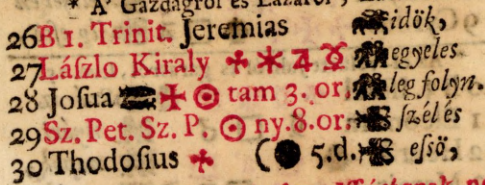 * A' Gazdagról és Lázáról,
26 B 1. Trinit. Jeremias idök,
27 Lászlo Kiraly ♃ egyeles
28 Josua ☉ tam 3. or. leg folyn.
29 Sz. Pet. Sz. P. ☉ ny. 8. or. szél és
30 Thodosius 5. d. essö,